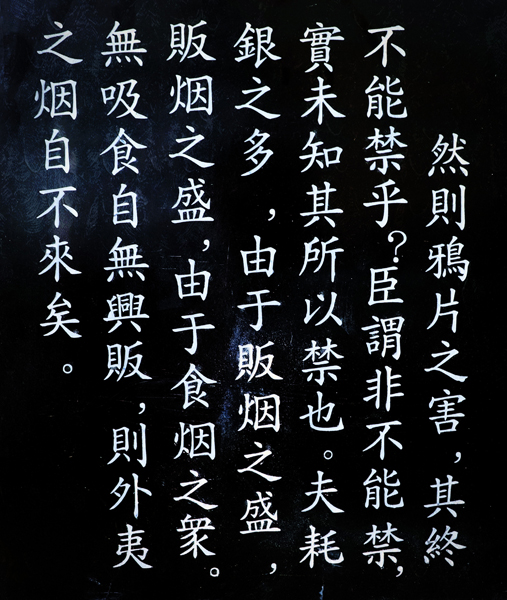 然則鴉片之害，其終
不能禁乎？臣謂非不能禁，
實未知其所以禁也。夫耗
銀之多，由于販烟之盛，
販烟之盛，由于食烟之衆。
無吸食自無興販，則外夷
之烟自不來矣。